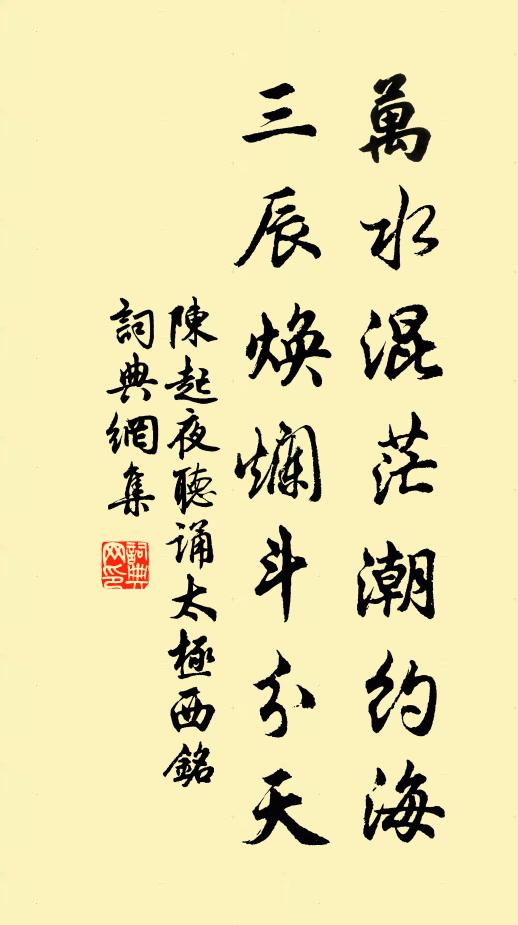 萬水混茫潮約海
三辰煥爛斗分天
陳起夜聽誦太極西銘
詞典網集
詞典網印